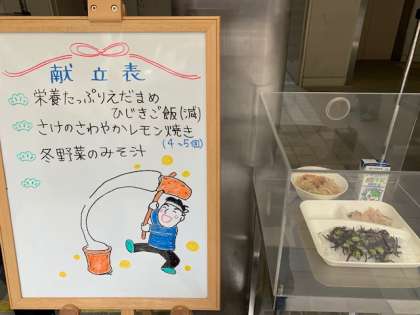 献立表
栄養たっぷりえだまめ
ひじきご飯(減)
さけのさわやかレモン焼き
(4~5個)
冬野菜のみそ汁